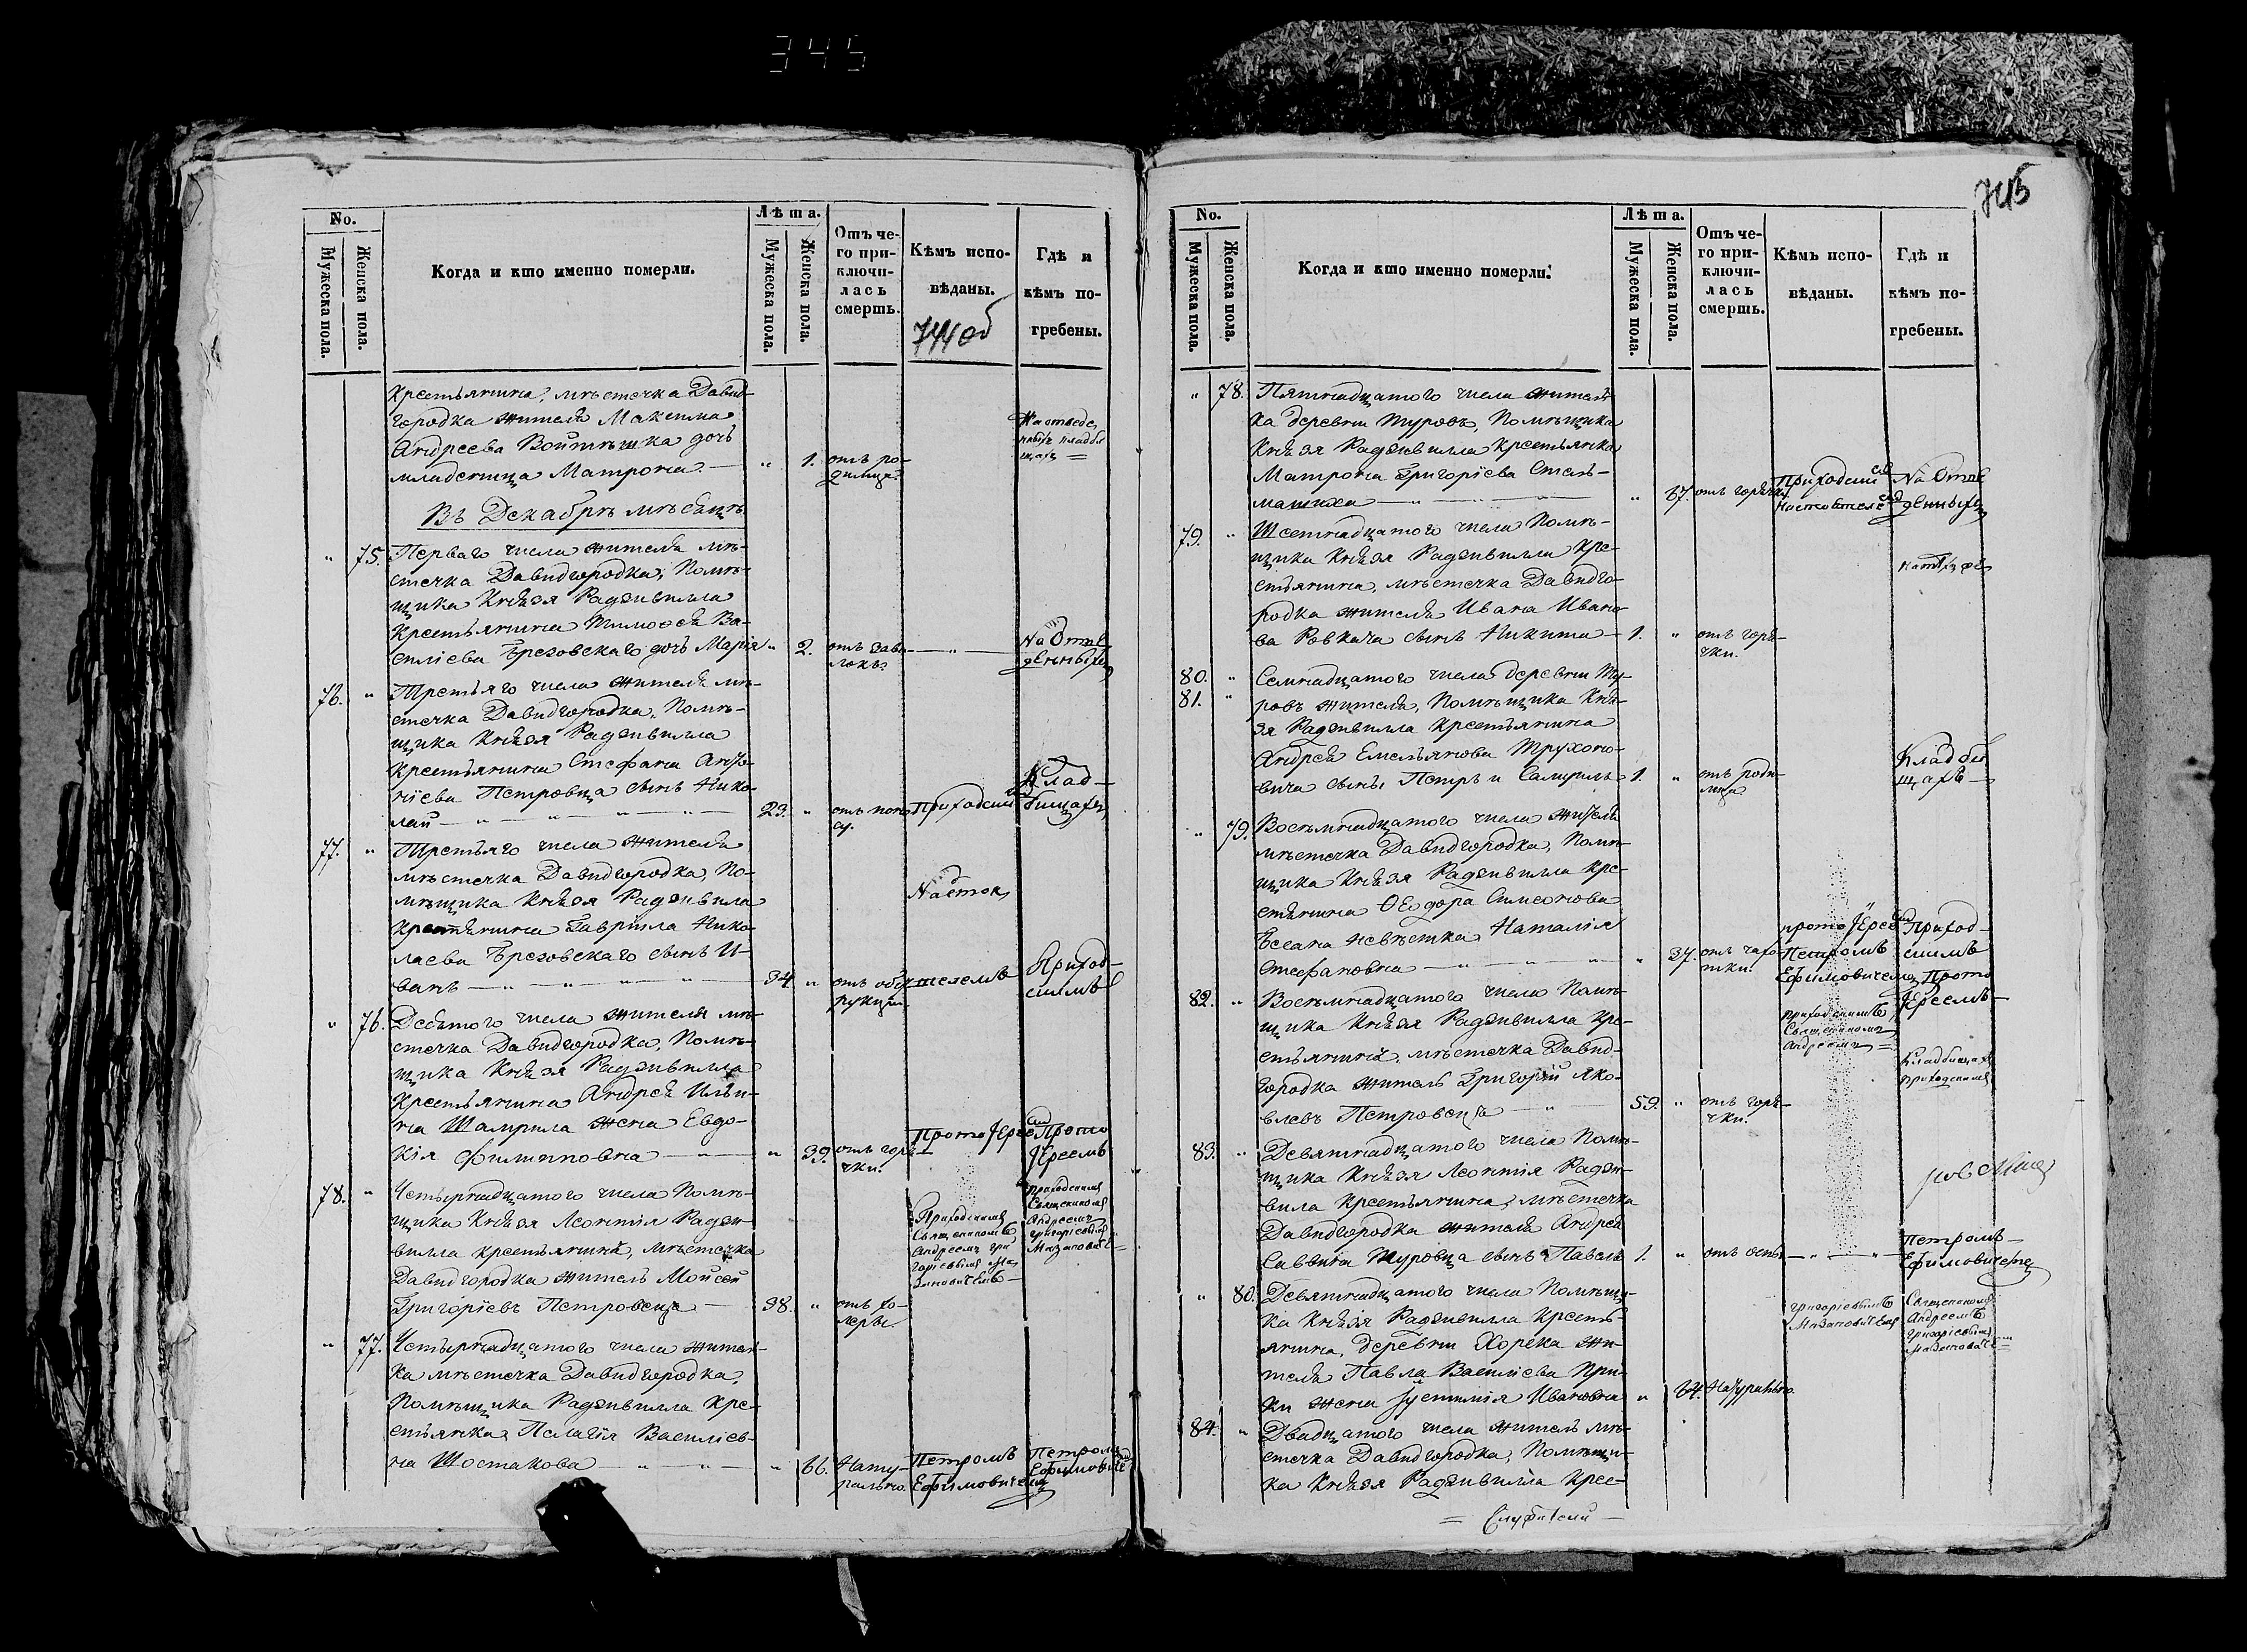 345
No.
Мужеска пола.
Женска пола.
Когда и кто именно померли.
Лѣта.
Мужеска пола.
Женска пола.
Отъ че-
го при-
ключи-
лась
смерть.
Кѣмъ испо-
вѣданы.
Гдѣ и
кѣмъ по-
гребены.
744 об
крестьянина, мѣстечка Давид-
городка жителя Максима
Андреева Войтѣшка дочь
младеница Матрона — " 1. отъ ро-
димца.
На отведе
нныхъ кладби
щахъ =
Въ Декабрѣ мѣсяцѣ.
" 75. Перваго числа жителя мѣ-
стечка Давидгородка, Помѣ-
щика Князя Радзивилла
крестьянина Тимоѳея Ва-
силіева Брезовскаго дочь Марія " 2. отъ зава-
локъ — " —
На Отве
денныхъ
76. " Третьяго числа жителя мѣ-
стечка Давидгородка, Помѣ-
щика Князя Радзивилла
крестьянина Стефана Анто-
ніева Петровца сынъ Нико-
лай — " — " — " — " — 23. "
Приходски
Клад-
бищахъ
77. " Третьяго числа жителя
мѣстечка Давидгородка, По-
мѣщика Князя Радзивила
крестьянина Гаврiила Нико-
лаева Брезовскаго сынъ И-
ванъ — " — " — " — " — 34 " отъ обст
рукціи.
Настоя
телемъ
Приход-
скимъ
" 76. Девятого числа жителя мѣ-
стечка Давидгородка, Помѣ-
щика Князя Радзивилла
крестьянина Андрея Ильи-
на Шамрила жена Евдо-
кія Филиповна — " — " 39. отъ горя-
чки.
Протоіерее
Прото
іереемъ
78. " Четырнадцатого числа Помѣ-
щика Князя Леонтія Радзи-
вилла крестьянинъ, мѣстечка
Давидгородка житель Мойсей
Григоріевъ Петровецъ — 38. " отъ хо-
леры.
Приходскимъ
Священникомъ
Андреемъ Гри
горіевымъ Ма
зановичемъ —
приходскимъ
Священникомъ
Андреемъ
Григоріевымъ
Мазановиче =
" 77. Четырнадцатого числа житель-
ка мѣстечка Давидгородка,
Помѣщика Радзивилла кре-
стьянка Пелагія Василіев-
на Шостакова — " — " — " 66. Нату-
рально.
Петромъ
Ефимовичемъ
Петромъ
Ефимовиче
745
No.
Мужеска пола.
Женска пола.
Когда и кто именно померли.
Лѣта.
Мужеска пола.
Женска пола.
Отъ че-
го при-
ключи-
лась
смерть.
Кѣмъ испо-
вѣданы.
Гдѣ и
кѣмъ по-
гребены.
" 78. Пятнадцатого числа житель-
ка деревни Туровъ, Помѣщика
Князя Радзивилла крестьянка
Матрона Григоріева Стель-
машиха — " — " — " 67. отъ горячки.
Приходски
Настоятеле
На Отве
денныхъ
79. " Шестнадцатого числа Помѣ-
щика Князя Радзивилла кре-
стьянина, мѣстечка Давидго-
родка жителя Ивана Ивано-
ва Ровкача сынъ Никита — 1. " отъ горя-
чки.
80. " Семнадцатого числа деревни Ту-
81. " ровъ жителя, Помѣщика Кня-
зя Радзивилла крестьянина
Андрея Емельянова Трухоно-
вича сыны Петръ и Самуилъ 1. " отъ роди-
мца.
Кладби
щахъ —
" 79. Восемнадцатого числа жителя
мѣстечка Давидгородка, Помѣ-
щика Князя Радзивилла кре-
стьянина Ѳеодора Симеонова
невѣстка Наталія
Стефановна — " — " — " 37. отъ чахо-
тки.
протоіерее
Петромъ
Ефимовичемъ
Приход-
скимъ
Прото
іереемъ —
82. " Восемнадцатого числа Помѣ-
щика Князя Радзивилла кре-
стьянинъ, мѣстечка Давид-
городка житель Григорій Яко-
влевъ Петровецъ — " — 59. " отъ горя-
чки.
приходскимъ
Священникомъ
Андреемъ =
Кладбищахъ
приходскимъ
83. " Девятнадцатого числа Помѣ-
щика Князя Леонтія Радзи-
вила крестьянина, мѣстечка
Давидгородка жителя Андрея
Саввина Туровца сынъ Павелъ 1. " отъ оспы — " — " —
Петромъ —
Ефимовичемъ
" 80. Девятнадцатого числа Помѣщи-
ка Князя Радзивилла кресть-
янина, деревни Хорска жи-
теля Павла Василіева При-
ки жена Іустинія Ивановна " 64. Натурально.
Григоріевымъ
Мазановичемъ
Священникомъ
Андреемъ
Григоріевымъ
Мазановиче =
84. " Двадцатого числа житель мѣ-
стечка Давидгородка, Помѣщи-
ка Князя Радзивилла крес-